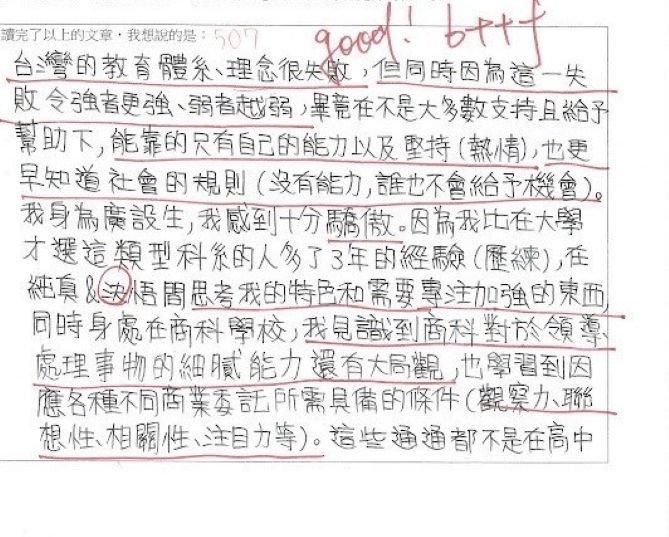 讀完了以上的文章，我想說的是： 507
good! b+++
台灣的教育體系、理念很失敗，但同時因為這一失
敗令強者更強、弱者越弱，畢竟在不是大多數支持且給予
幫助下，能靠的只有自己的能力以及堅持(熱情)，也更
早知道社會的規則(沒有能力，誰也不會給予機會)。
我身為廣設生，我感到十分驕傲。因為我比在大學
才選這類型科系的人多了3年的經驗(歷練)，在
純真&決悟間思考我的特色和需要專注加強的東西，
同時身處在商科學校，我見識到商科對於領導、
處理事物的細膩能力還有大局觀，也學習到因
應各種不同商業委託所需具備的條件(觀察力、聯
想性、相關性、注目力等)。這些通通都不是在高中